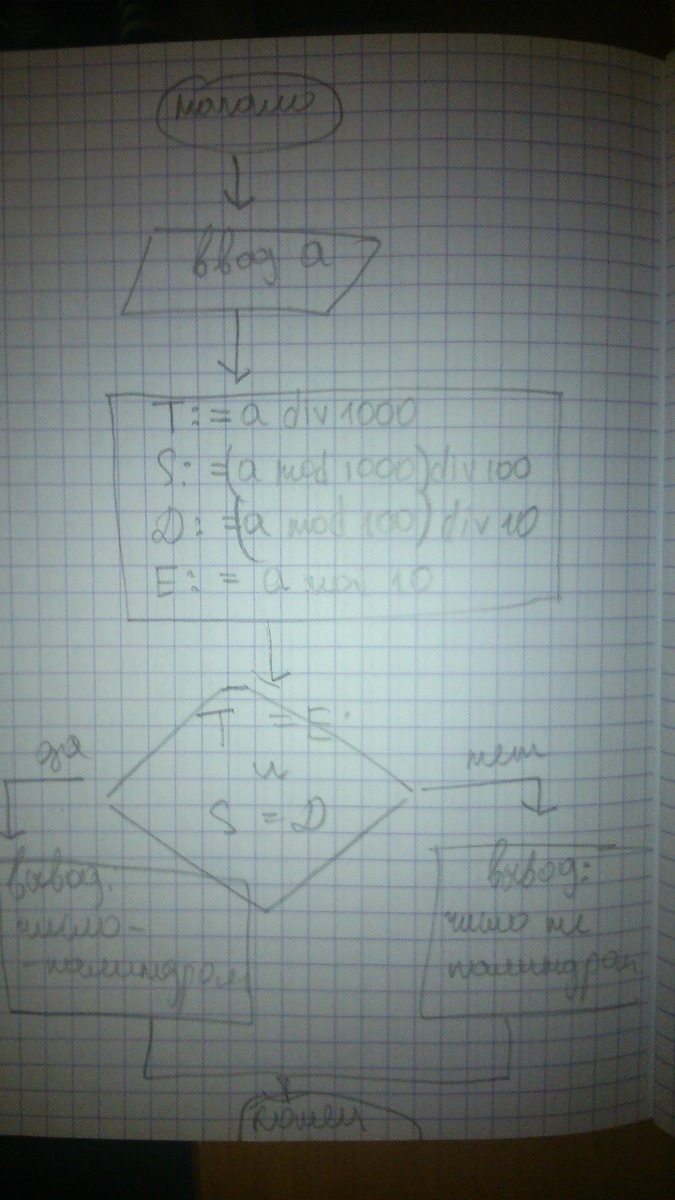 начало
ввод a
T:=a div 1000
S:=(a mod 1000)div 100
D:=(a mod 100)div 10
E:= a mod 10
T = E
и
S = D
да
нет
вывод:
число-
-палиндром
вывод:
число не
палиндром
конец